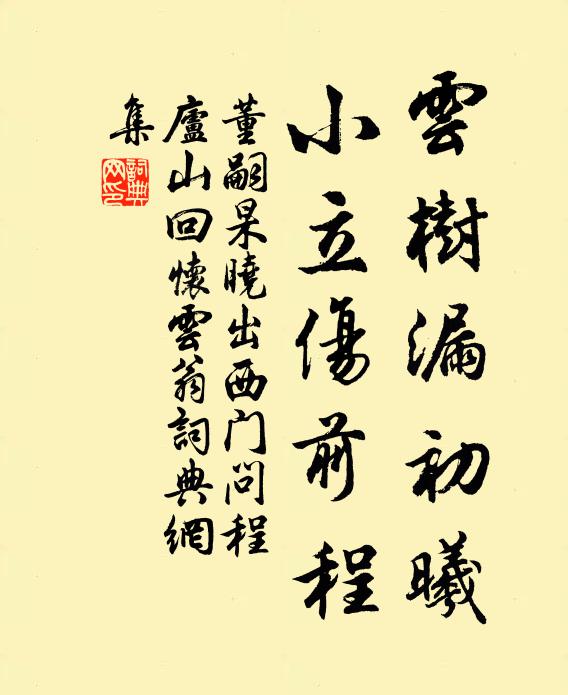 雲樹漏初曦
小立傷前程
董嗣杲曉出西门问程
廬山回懷雲翁詞典網
集
詞典网印